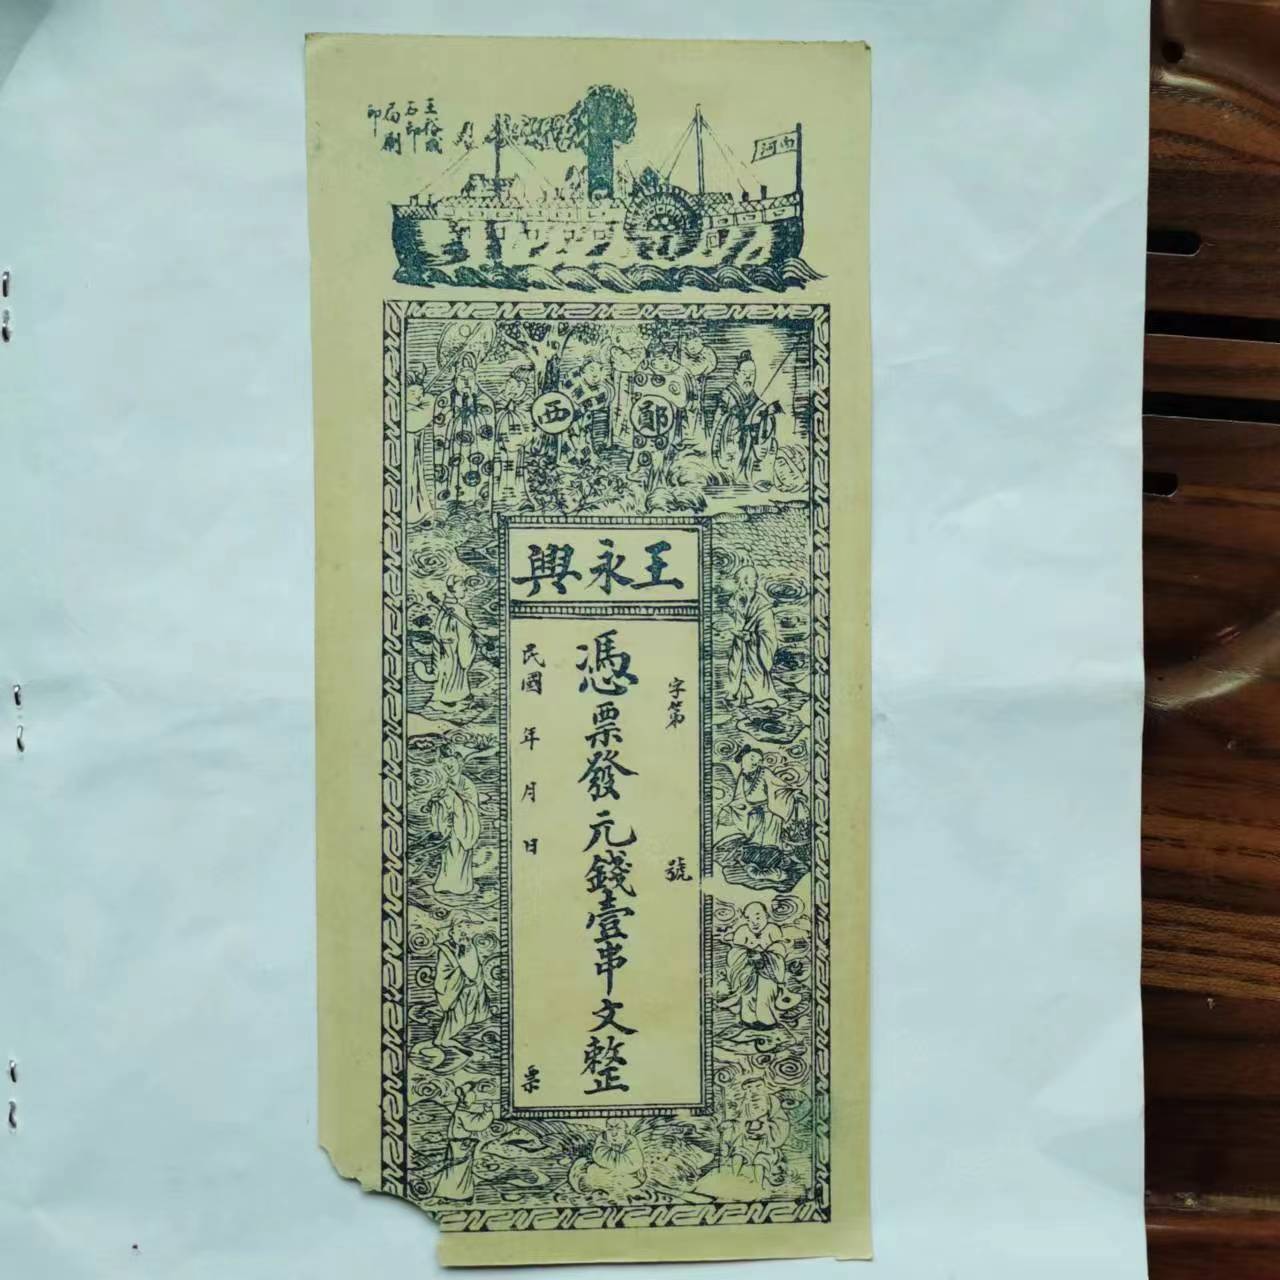 河南
石印
局刷
印
鄖西
王永興
字第 號
憑票發元錢壹串文整
民國 年 月 日 票